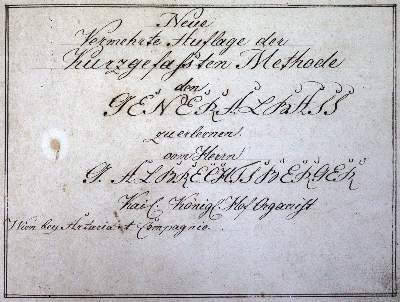 Neue
Vermehrte Auflage der
kurzgefaßten Methode
den
GENERALBASS
zu erlernen
vom Herrn
G. ALBRECHTSBERGER
Kais. Königl. Hof Organist
Wien bey Artaria et Compagnie.